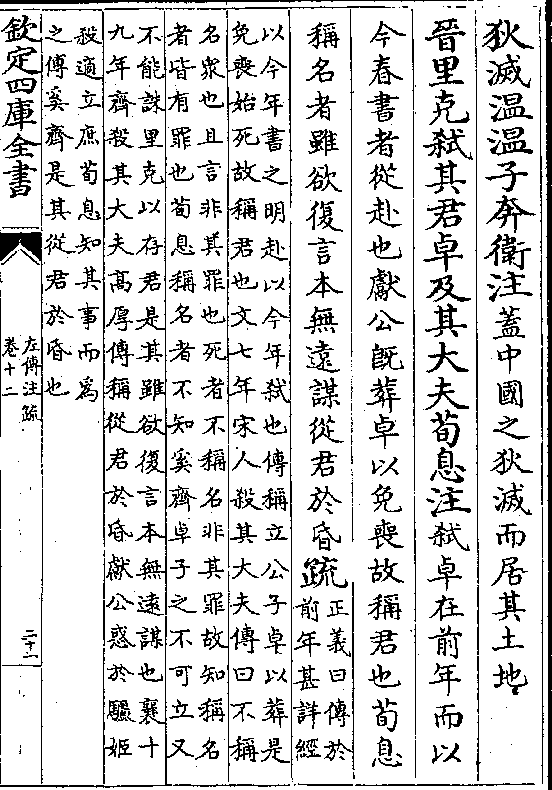 狄滅温温子奔衛注蓋中國之狄滅而居其土地
晉里克弑其君卓及其大夫荀息注弑卓在前年而以
今春書者從赴也獻公既葬卓以免喪故稱君也荀息
稱名者雖欲復言本無遠謀從君於昏疏正義曰傳於
前年甚詳經
以今年書之明赴以今年弑也傳稱立公子卓以葬是
免喪始死故稱君也文七年宋人殺其大夫傳曰不稱
名衆也且言非其罪也死者不稱名非其罪故知稱名
者皆有罪也荀息稱名者不知奚齊卓子之不可立又
不能誅里克以存君是其雖欲復言本無遠謀也襄十
九年齊殺其大夫高厚傳稱從君於昏獻公惑於驪姬
殺適立庶荀息知其事而為
之傅奚齊是其從君於昏也
欽定四庫全書
左傳注疏
卷十二
二十二